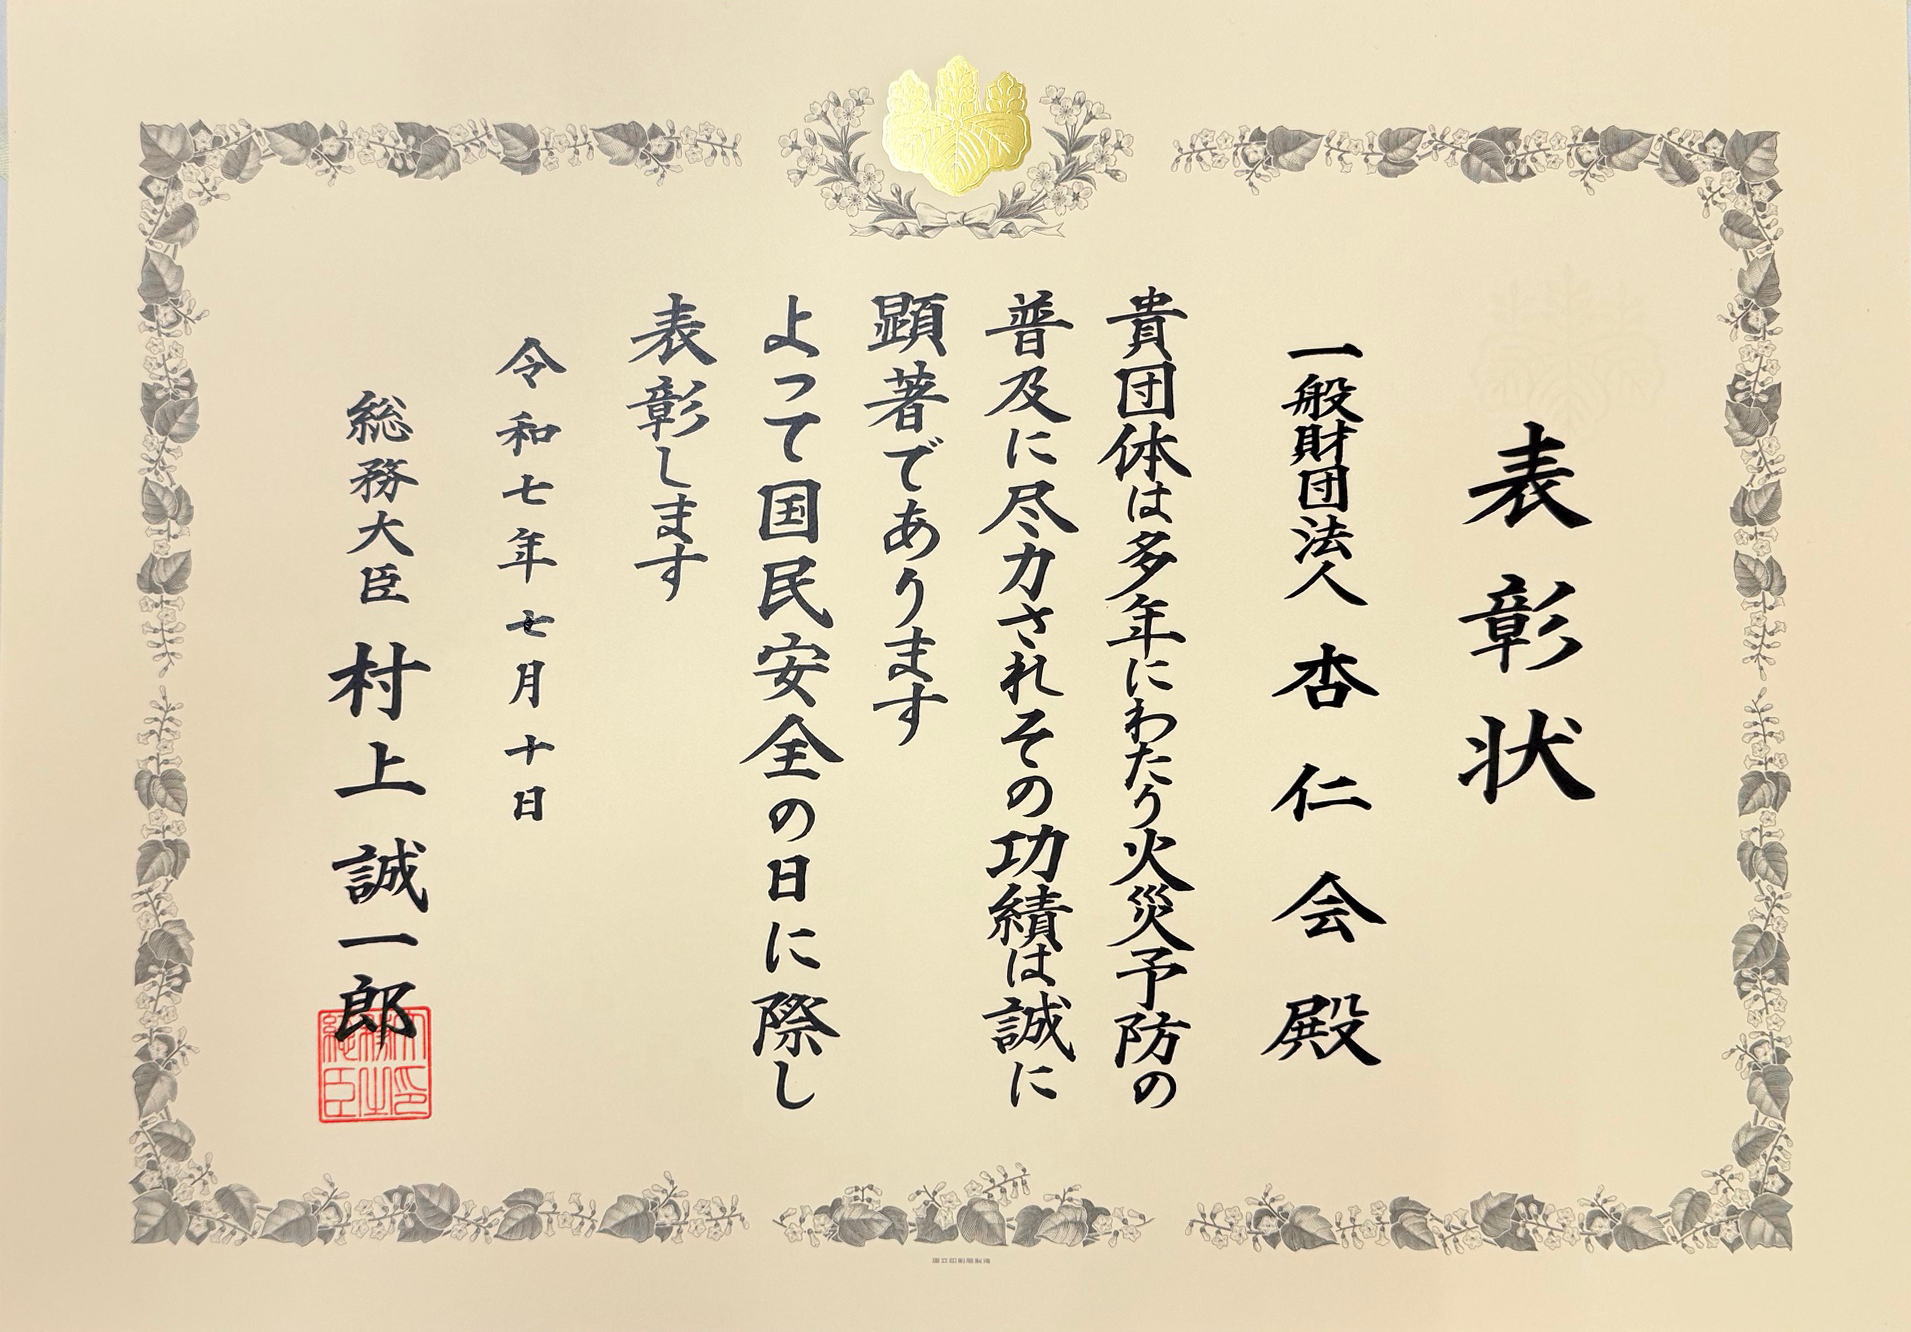 表彰状
一般財団法人 杏仁会殿
貴団体は多年にわたり火災予防の
普及に尽力されその功績は誠に
顕著であります
よって国民安全の日に際し
表彰します
令和七年七月十日
総務大臣 村上誠一郎
国立印刷局製造